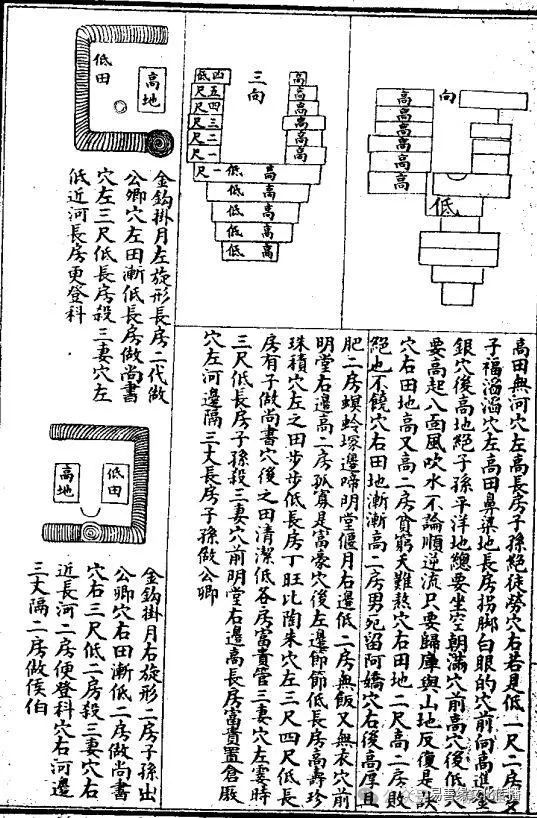 向
高
高
高
高
高
低
三向
高
高
高
高
高
四低
五尺
四尺
三尺
二尺
一尺
一尺
低 高
低 高
低 高
低 高
低 高
高田無河穴左高長房子孫絕徒勞穴右若是低一尺二房兒
子福滔滔穴左高田鼻梁地長房拐脚白眼的穴前向高進金
銀穴後高地絕子孫平洋地總要坐空朝滿穴前高穴後低八
要高起八面風吹水不論順逆流只要歸庫與山地反復是訣
穴右田地高又高二房貧窮天難熬穴右田地二尺高二房敗
絕也不饒穴右田地漸漸高二房男死留阿嬌穴右後高厚且
肥二房螟蛉塚邊啼明堂偃月右邊低二房無飯又無衣穴前
明堂右邊高二房孤寡是富豪穴後左邊節節低長房高壽珍
珠積穴左之田步步低長房丁旺比陶朱穴左三尺四尺低長
房有子做尚書穴後之田清潔低各房富貴管三妻穴左霎時
三尺低長房子孫殺三妻穴前明堂右邊高長房富貴置倉廒
穴左河邊隔三丈長房子孫做公卿
高地
低田
金鈎掛月左旋形長房二代做
公卿穴左田漸低長房做尚書
穴左三尺低長房殺三妻穴左
低近河長房更登科
低田
高地
金鈎掛月右旋形二房子孫出
公卿穴右田漸低二房做尚書
穴右三尺低二房殺三妻穴右
近長河二房便登科穴右河邊
三丈隔二房做侯伯